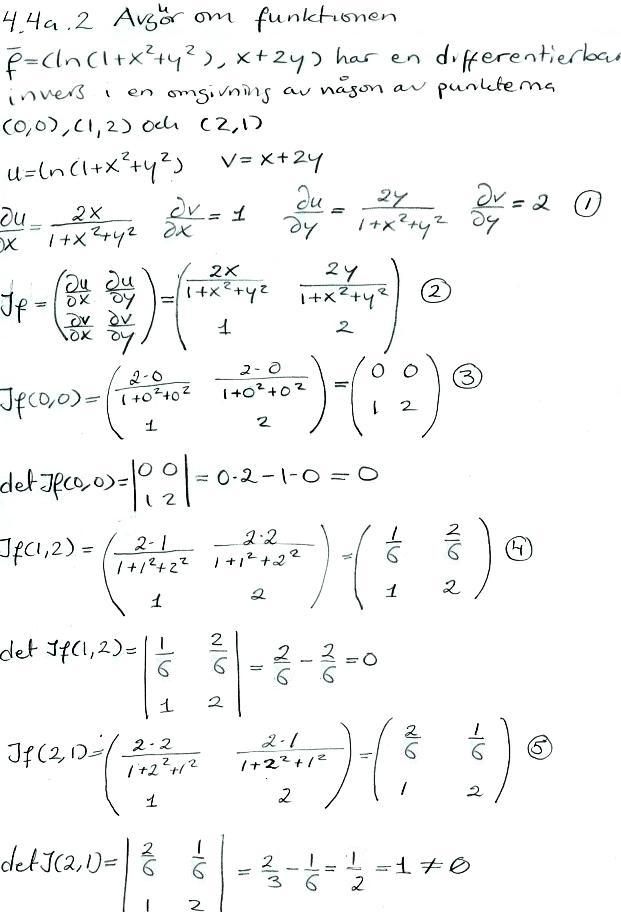 4.4a.2 Avgör om funktionen
f̄=(ln(1+x²+y²), x+2y) har en differentierbar
invers i en omgivning av någon av punkterna
(0,0),(1,2) och (2,1)
u=ln(1+x²+y²) v=x+2y
∂u/∂x = 2x/(1+x²+y²) ∂v/∂x = 1 ∂u/∂y = 2y/(1+x²+y²) ∂v/∂y = 2 ①
Jf = (∂u/∂x ∂u/∂y; ∂v/∂x ∂v/∂y) = (2x/(1+x²+y²) 2y/(1+x²+y²); 1 2) ②
Jf(0,0) = (2·0/(1+0²+0²) 2·0/(1+0²+0²); 1 2) = (0 0; 1 2) ③
det Jf(0,0) = |0 0; 1 2| = 0·2-1·0 = 0
Jf(1,2) = (2·1/(1+1²+2²) 2·2/(1+1²+2²); 1 2) = (1/6 2/6; 1 2) ④
det Jf(1,2) = |1/6 2/6; 1 2| = 2/6 - 2/6 = 0
Jf(2,1) = (2·2/(1+2²+1²) 2·1/(1+2²+1²); 1 2) = (2/6 1/6; 1 2) ⑤
det J(2,1) = |2/6 1/6; 1 2| = 2/3 - 1/6 = 1/2 = 1 ≠ 0